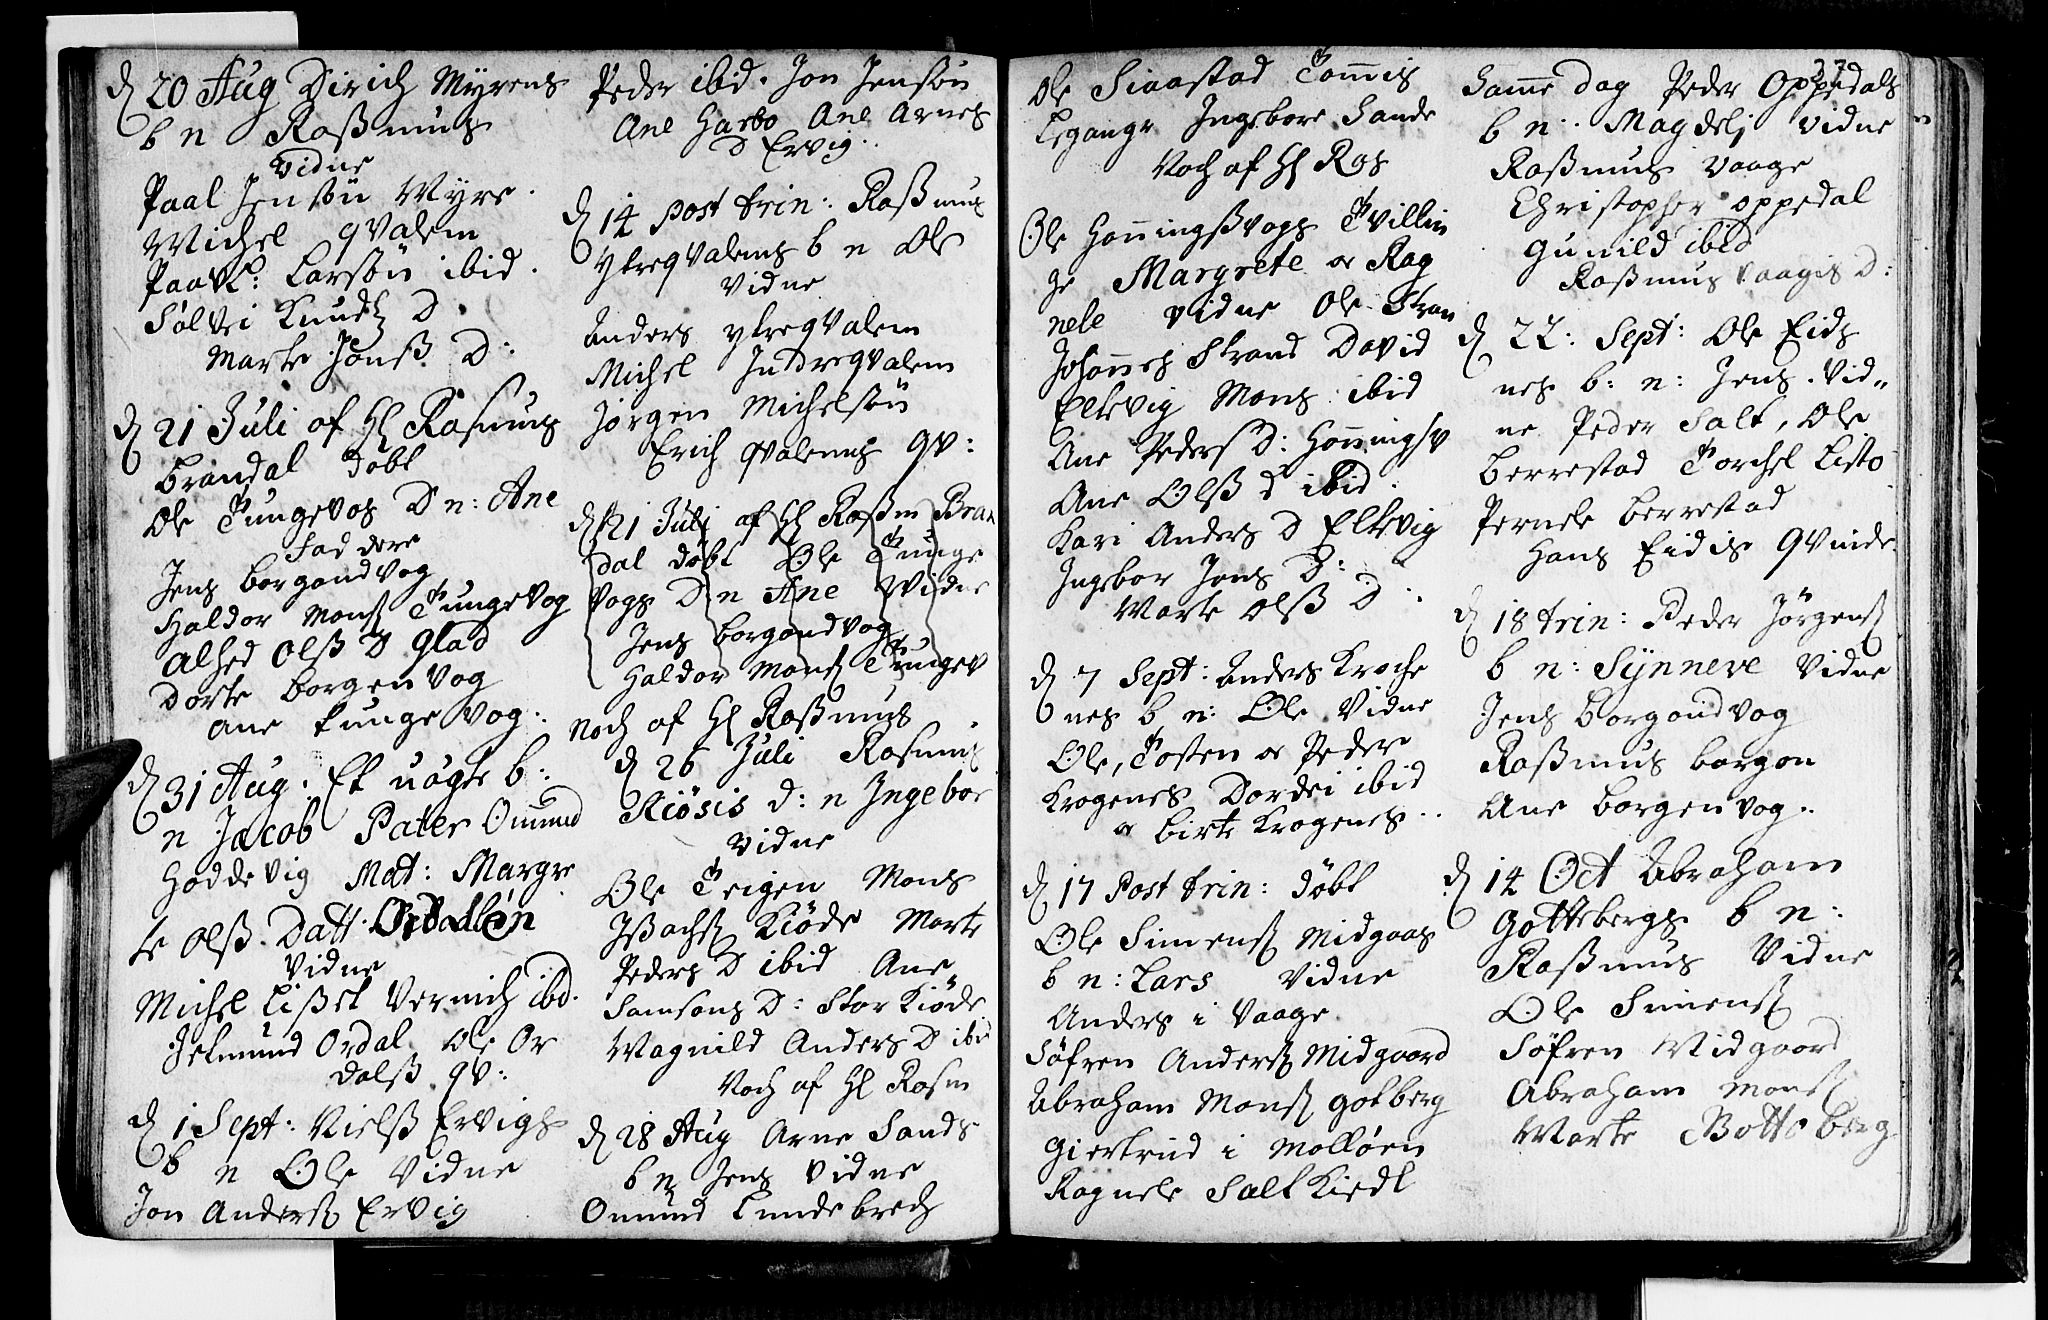 d 20 Aug Dirich Myrens
b n Rasmus
Vidne
Paal Jensøn Myre.
Michel qvalem
Paavl: Larsøn ibid.
Sølvei Knudtz D
Marte Jonsß D:
d 21 Juli af Hl Rasmus
Brandal døbt
Ole Tungevogs D n: Ane
Faddere
Jens borgondvog
Haldor Mons Tungevog
Alhed Olsß D Glad
Dorte borgenvog
Ane tungevog.
d 31 Aug. Et uægte b:
n Jacob Pater Omund
Hoddevig Mat: Margre
te Olsß Datt. Ordalen
Vidne
Michel Lisset ibd.
Jetmund Ordal. Ole Or
dalsß qv:
d 1 Sept: Nielsß Ervigs
b n Ole Vidne
Jon Anders Ervig
Peder ibid. Jon Jensøn
Ane Garbo Ane Arnes
D Ervig.
d 14 Post trin: Rasmus
Ytreqvalems b n Ole
Vidne
Anders ytreqvalem
Michel Indreqvalem
Jørgen Michelsøn
Erich qvalems qv:
d 21 Juli af Hl Rasm Bran
dal døbt Ole Tunge
vogs D n Ane Vidne
Jens borgondvog
Haldor Mons Tungev
Noch af Hl Rasmus
d 26 Juli Rasmus
Kiøsis d: n Ingebor
Vidne
Ole Teigen Mons
Isachs Kiøde Marte
Peders D ibid Ane
Samsons D: Stor Kiøde
Magnild Anders D ibid
Noch af Hl Rasm
d 28 Aug Arne Sands
b n Jens Vidne
Omund Lundebrech
Ole Siaastad Tomis
Legangr Ingebore Sande
Noch af Hl Ras
Ole Honningsvogs Tvillin
ge Margrete & Rag
nele Vidne Ole Stran
Johannes Strand David
Elkvig Mons ibid
Ane Peders D: Honningsv
Ane Olsß d ibid.
Kari Anders D Elkvig
Ingebor Jons D:
Marte Olsß D:
d 7 Sept: Anders Kroche
nes b n: Ole Vidne
Ole, Tosten & Peder
Krogenes Dordei ibid
& birte Krogenes..
d 17 Post trin: døbt
Ole Simens Midgaas
b n: Lars Vidne
Anders i Vaage
Søfren Anders Midgaard
Abraham Mons gotberg
Giertrud i Molløen
Ragnele Saltkiedt
37
Samme dag Peder Oppedals
b n: Magdeli Vidne
Rasmus Vaage
Christopher oppedal
Gunild ibid
Rasmus Vaagis D:
d 22: Sept: Ole Eids
nes b: n: Jens. Vid„
ne Peder Salt, Ole
Berrestad Torchel Listo
Pernele berrestad
Hans Eidis qvinde.
d 18 trin: Peder Jørgens
b n: Synneve Vidne
Jens Borgondvog
Rasmus borgon
Ane borgenvog.
d 14 Oct Abraham
Gottebergs b n:
Rasmus Vidne
Ole Simens
Søfren Midgaard
Abraham Mons
Marte Gottoberg